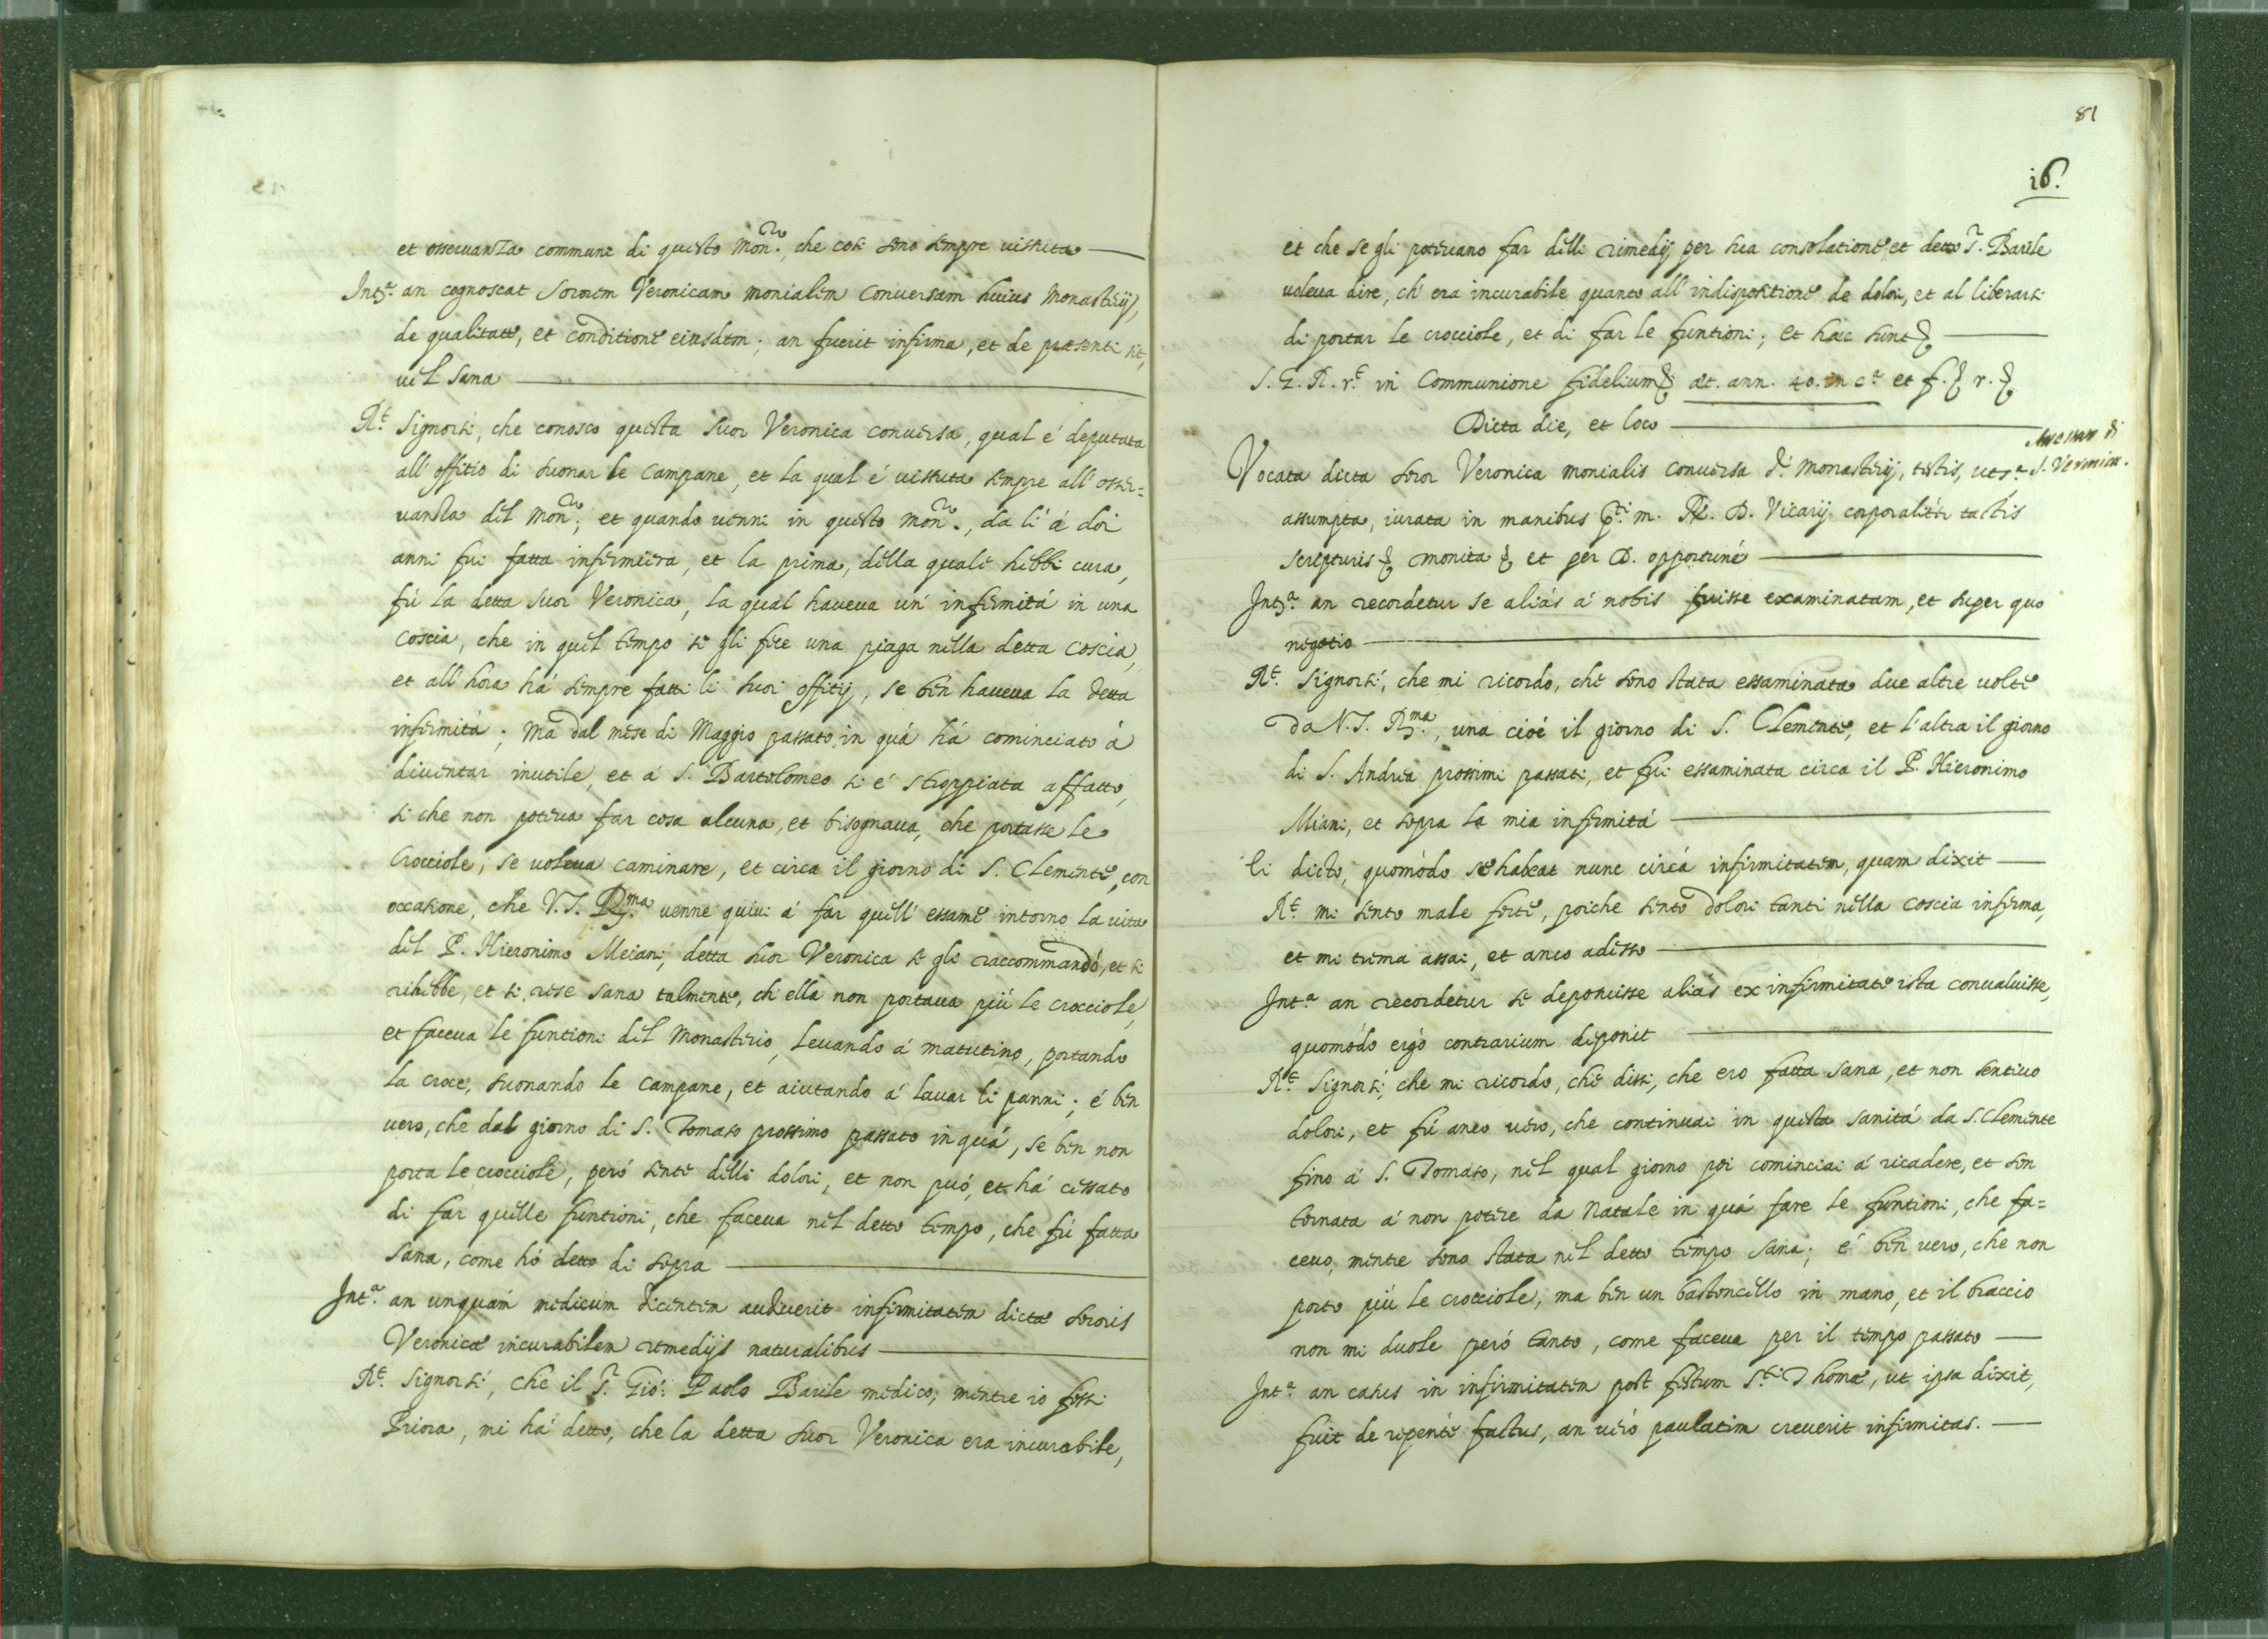 et osseruanza commune di questo Mon.ro, che così sono sempre uissuta
Int.a an cognoscat Sororem Veronicam monialem Conuersam huius Monasterij,
de qualitate, et conditione eiusdem; an fuerit infirma, et de presenti sit,
uel sana
R.t Signorsì, che conosco questa Suor Veronica conuersa, qual é deputata
all' offitio di suonar le Campane, et la qual é uissuta sempre all' osser=
uanza del Mon.ro; et quando uenni in questo Mon.ro, da lì á doi
anni fui fatta infermiera, et la prima, della quale hebbi cura,
fú la detta Suor Veronica, la qual haueua un' infirmitá in una
Coscia, che in quel tempo se gli fece una piaga nella detta Coscia,
et all' hora há sempre fatti li suoi offitij, se ben haueua la detta
infirmitá; ma dal mese di Maggio passato in quá há cominciato á
diuentar inutile, et á S. Bartolomeo si é stroppiata affatto,
si che non poteua far cosa alcuna, et bisognaua, che portasse le
Crocciole, se uoleua caminare, et circa il giorno di S. Clemente, con
occasione, che V.S. R.ma uenne quiui á far quell' essame intorno la uita
del P. Hieronimo Meiani, detta Suor Veronica se gli raccommandó, et si
rihebbe, et si rese sana talmente, ch' ella non portaua piú le crocciole,
et faceua le funtioni del Monasterio, leuando á matutino, portando
la croce, suonando le Campane, et aiutando á lauar li panni; é ben
uero, che dal giorno di S. Tomaso prossimo passato in quá, se ben non
porta le crocciole, peró sente delli dolori, et non puó, et há cessato
di far quelle funtioni, che faceua nel detto tempo, che fú fatta
sana, come hó detto di sopra
Int.a an unquám medicum dicentem audiuerit infirmitatem dictæ sororis
Veronicæ incurabilem remedijs naturalibus
R.t Signorsì, che il S.r Gió: Paolo Barile medico, mentre io fossi
Priora, mi há detto, che la detta Suor Veronica era incurabile,
81
i6.
et che se gli poteuano far delli rimedij per sua consolatione, et detto S.r Barile
uoleua dire, ch' era incurabile quanto all' indispositione de dolori, et al liberarsi
di portar le crocciole, et di far le funtioni; et hæc sunt &
S. G. R. r.t in Communione fidelium & æt. ann. 40. in c.a et f. & r. &
Dicta die, et loco
Vocata dicta soror Veronica monialis conuersa d.i Monasterij, testis, ut s.a
S. Veronica.
assumpta, iurata in manibus m. R. D. Vicarij corporalitér tactis
scripturis & monita & et per D. opportuné
Int.a an recordetur se aliás á nobis fuisse examinatam, et super quo
negotio
R.t Signorsì, che mi ricordo, che sono stata essaminata due altre uolte
da V.S. R.ma, una cioé il giorno di S. Clemente, et l'altra il giorno
di S. Andrea prossimi passati, et fui essaminata circa il P. Hieronimo
Miani, et sopra la mia infirmitá
Ei dicto, quomódo se habeat nunc circá infirmitatem, quam dixit
R.t mi sento male forte, poiche sento dolori tanti nella coscia inferma,
et mi trema assai, et anco adesso
Int.a an recordetur se deposuisse aliás ex infirmitate ista conualuisse,
quomódo ergó contrarium deponit
R.t Signorsì, che mi ricordo, che dissi, che ero fatta sana, et non sentiuo
dolori, et fú anco uero, che continuai in questa sanitá da S. Clemente
fino á S. Tomaso, nel qual giorno poi cominciai á ricadere, et son
tornata á non potere da Natale in quá fare le funtioni, che fa=
ceuo, mentre sono stata nel detto tempo sana; é ben uero, che non
porto piú le crocciole, ma ben un bastoncello in mano, et il braccio
non mi duole peró tanto, come faceua per il tempo passato
Int.a an casus in infirmitatem post festum S.ti Thomæ, ut ipsa dixit,
fuit de repenté factus, an uéró paulatim creuerit infirmitas.